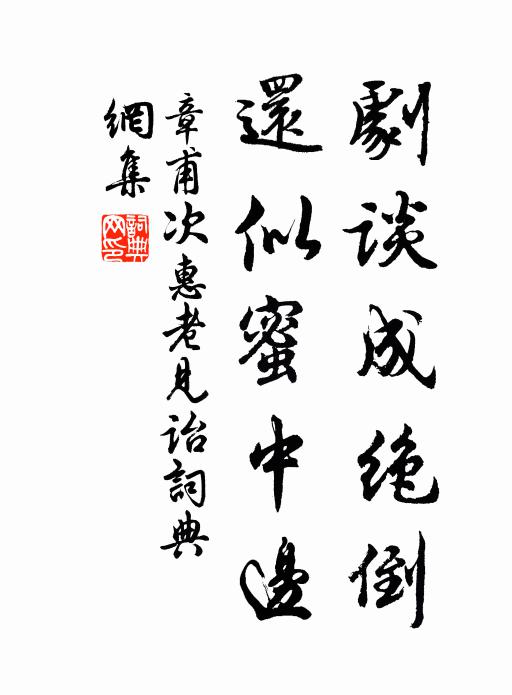 劇談成絶倒
還似蜜中邊
章甫次惠老見詒詞典
網集
詞典网印